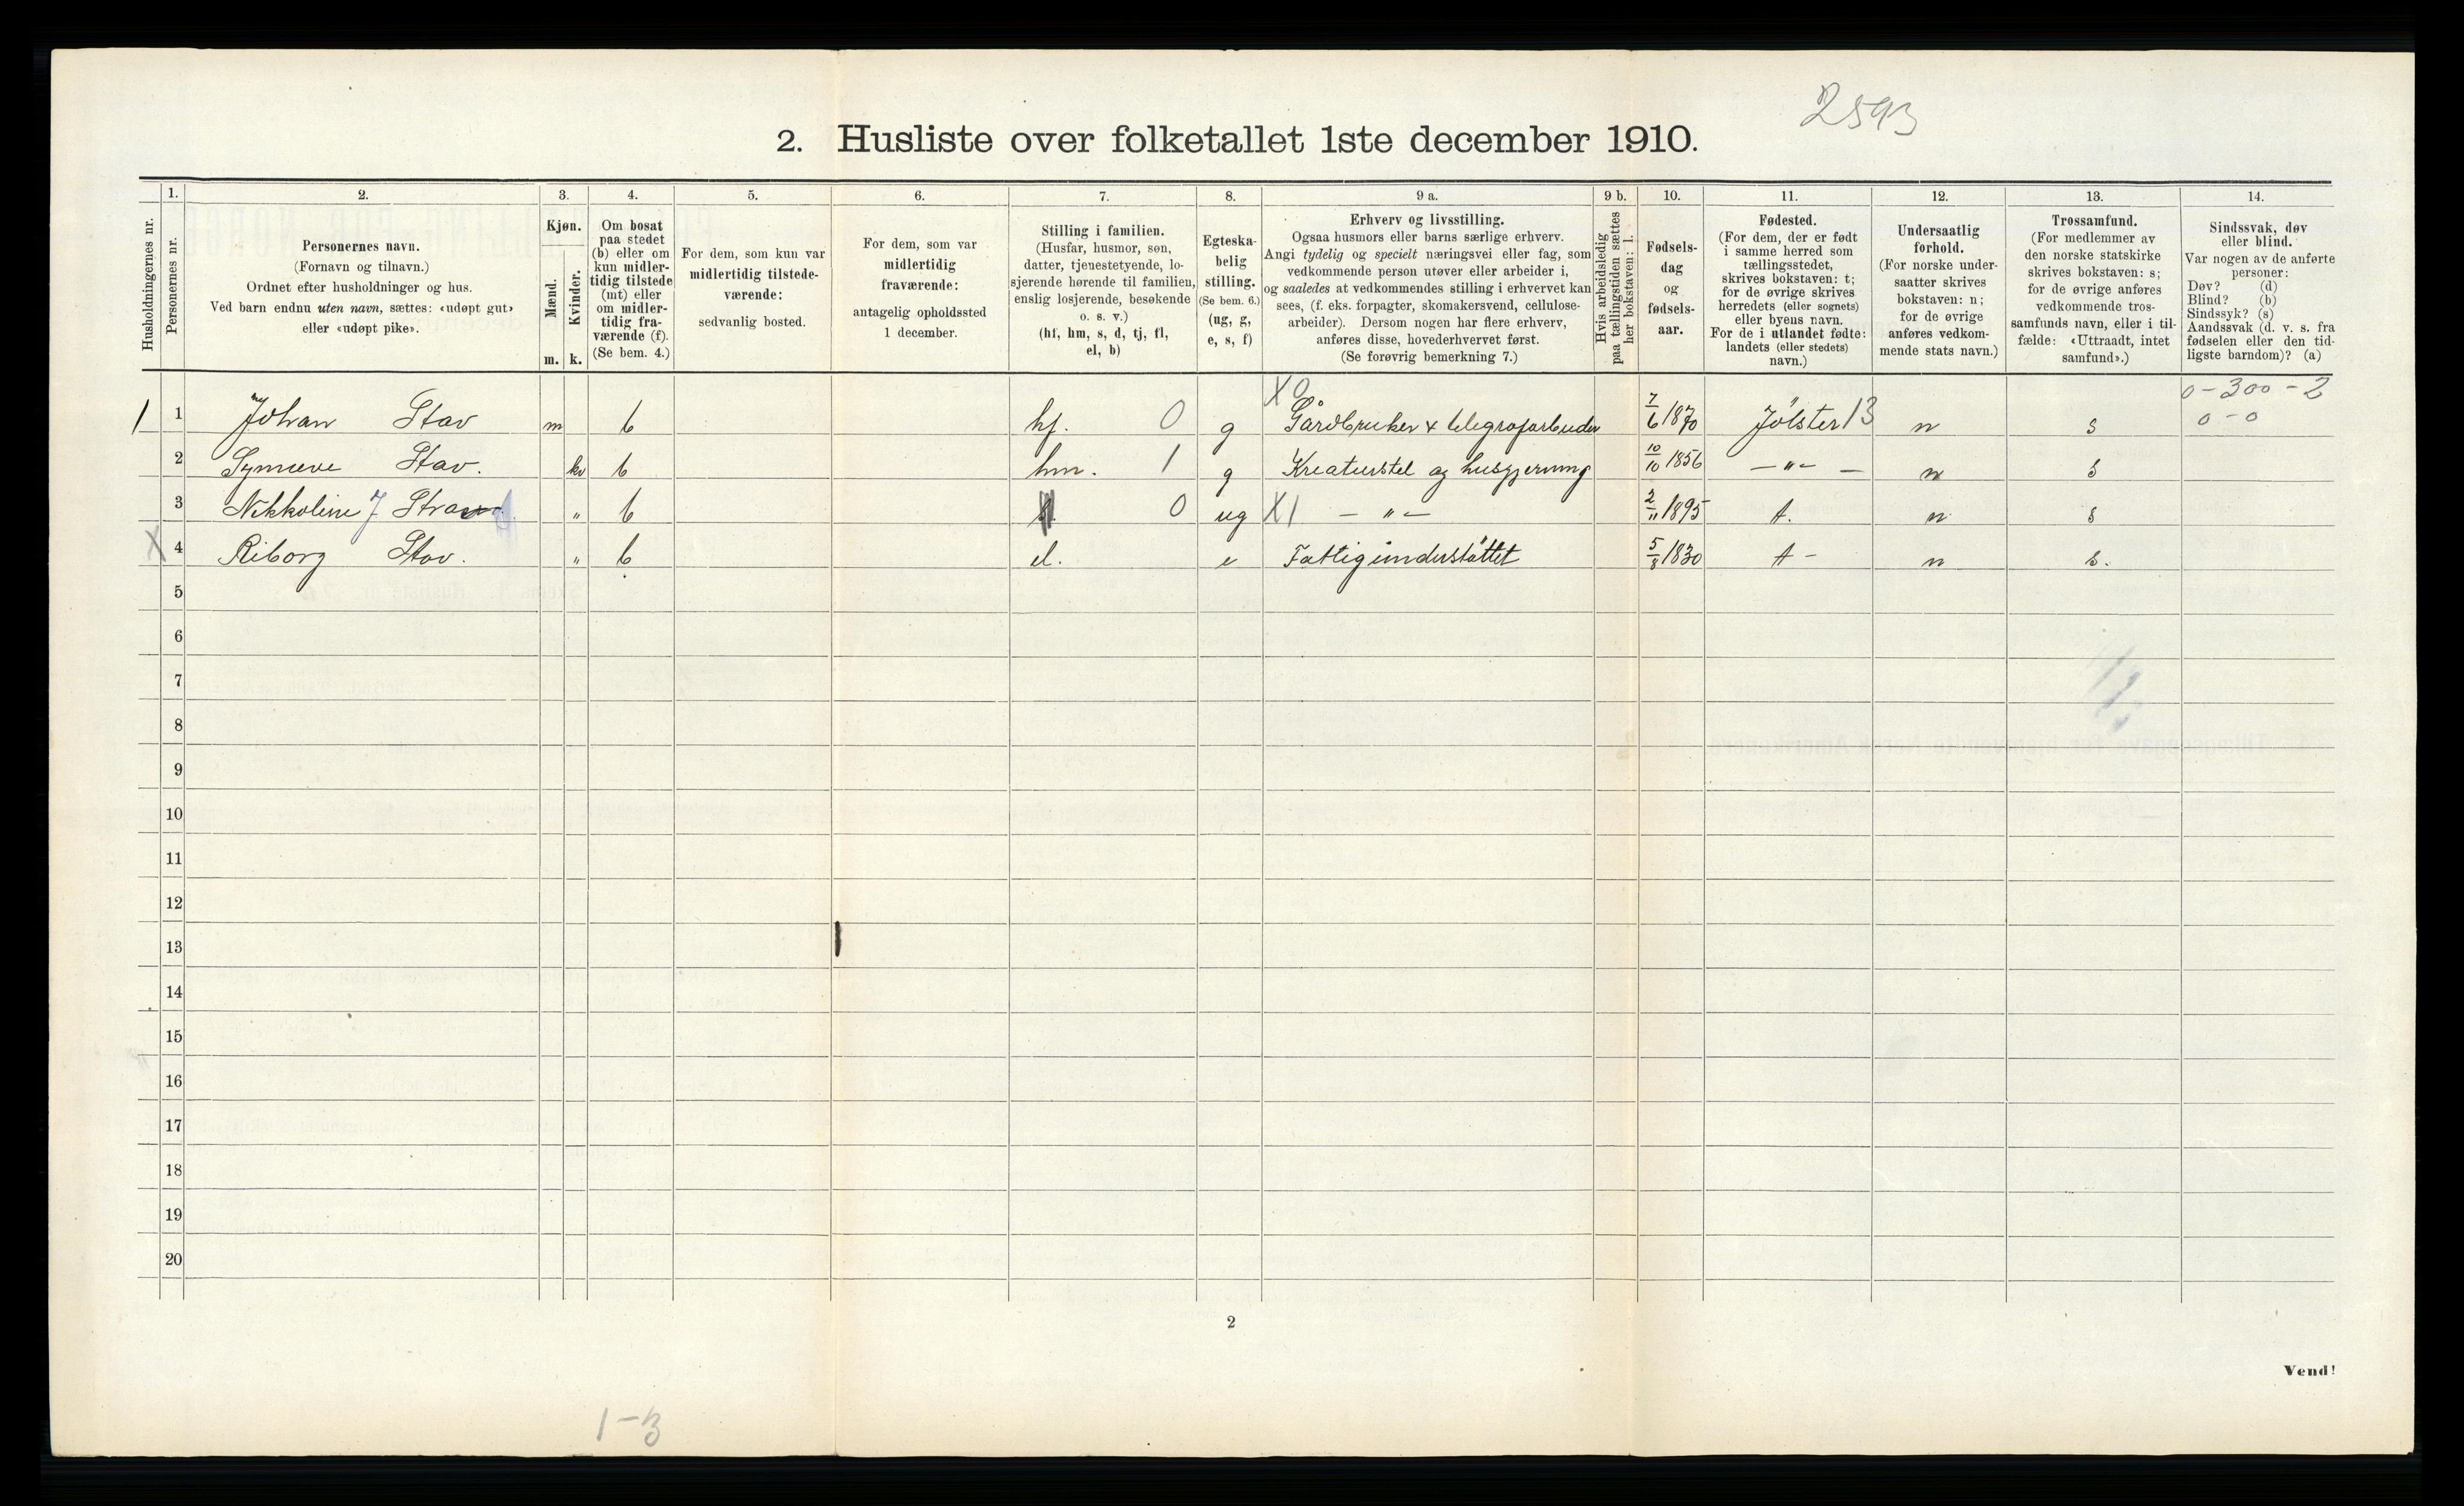 2593
2. Husliste over folketallet 1ste december 1910.
Husholdningernes nr.
1.
Personernes nr.
2.
Personernes navn.
(Fornavn og tilnavn.)
Ordnet efter husholdninger og hus.
Ved barn endnu uten navn, sættes: «udøpt gut»
eller «udøpt pike».
3.
Kjøn.
Mænd.
Kvinder.
m. k.
4.
Om bosat
paa stedet
(b) eller om
kun midler-
tidig tilstede
(mt) eller
om midler-
tidig fra-
værende (f).
(Se bem. 4.)
5.
For dem, som kun var
midlertidig tilstede-
værende:
sedvanlig bosted.
6.
For dem, som var
midlertidig
fraværende:
antagelig opholdssted
1 december.
7.
Stilling i familien.
(Husfar, husmor, søn,
datter, tjenestetyende, lo-
sjerende hørende til familien,
enslig losjerende, besøkende
o. s. v.)
(hf, hm, s, d, tj, fl,
el, b)
8.
Egteska-
belig
stilling.
(Se bem. 6.)
(ug, g,
e, s, f)
9 a.
Erhverv og livsstilling.
Ogsaa husmors eller barns særlige erhverv.
Angi tydelig og specielt næringsvei eller fag, som
vedkommende person utøver eller arbeider i,
og saaledes at vedkommendes stilling i erhvervet kan
sees, (f. eks. forpagter, skomakersvend, cellulose-
arbeider). Dersom nogen har flere erhverv,
anføres disse, hovederhvervet først.
(Se forøvrig bemerkning 7.)
9 b.
Hvis arbeidsledig
paa tællingstiden sættes
her bokstaven: l.
10.
Fødsels-
dag
og
fødsels-
aar.
11.
Fødested.
(For dem, der er født
i samme herred som
tællingsstedet,
skrives bokstaven: t;
for de øvrige skrives
herredets (eller sognets)
eller byens navn.
For de i utlandet fødte:
landets (eller stedets)
navn.)
12.
Undersaatlig
forhold.
(For norske under-
saatter skrives
bokstaven: n;
for de øvrige
anføres vedkom-
mende stats navn.)
13.
Trossamfund.
(For medlemmer av
den norske statskirke
skrives bokstaven: s;
for de øvrige anføres
vedkommende tros-
samfunds navn, eller i til-
fælde: «Uttraadt, intet
samfund».)
14.
Sindssvak, døv
eller blind.
Var nogen av de anførte
personer:
Døv? (d)
Blind? (b)
Sindssyk? (s)
Aandssvak (d. v. s. fra
fødselen eller den tid-
ligste barndom)? (a)
X 0 0-300-2
1 1 Johan Stav m b hf. 0 g Gårdbruker & telegrafarbeider 7/6 1870 Jölster 13 n s 0-0
2 Synneve Stav. kv b hm. 1 g Kreaturstel og husgjerning 10/10 1856 — " — n s
3 Nikkoline J b 0 ug X1 — " — 2/11 1895 t. n s
X 4 Riborg Stav. " b el. e Fattigunderstöttet 5/8 1830 t - n s.
5
6
7
8
9
10
11
12
13
14
15
16
17
18
19
20
2
Vend!
1-3